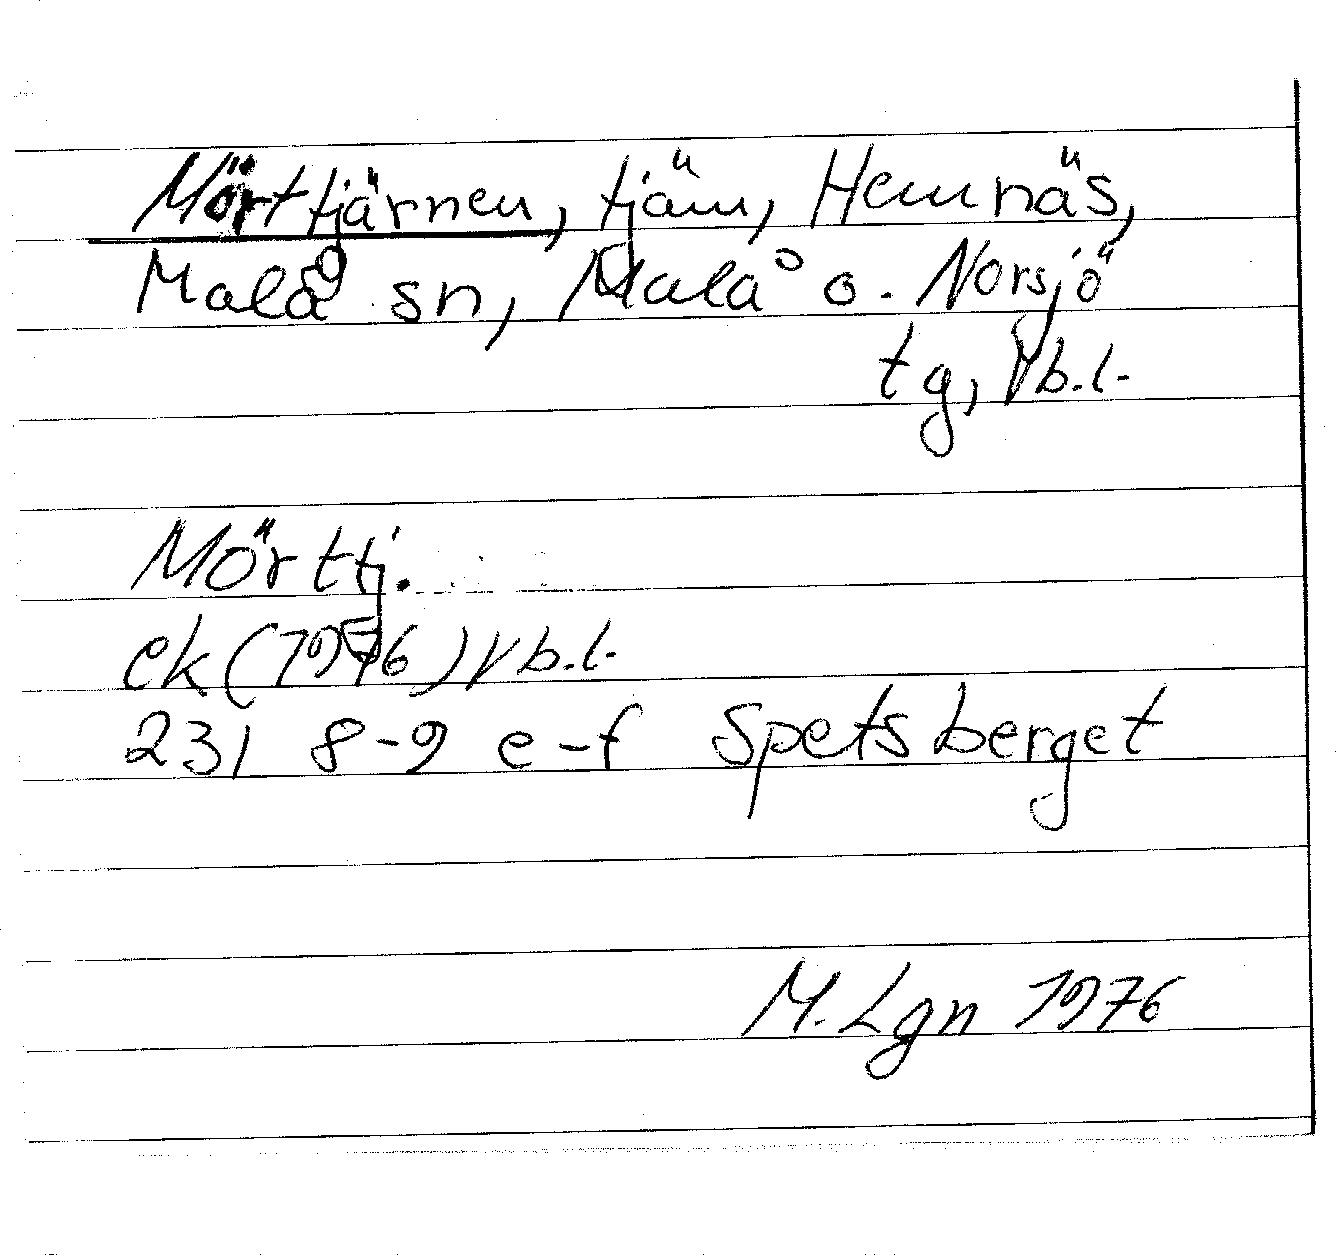 Mörttjärnen, tjärn, Hemnäs,
Malå sn, Malå o. Norsjö
tg, Vb.l.
Mörttj.
ek (1976) Vb.l.
231 8-9 e-f Spetsberget
M. Lgn 1976